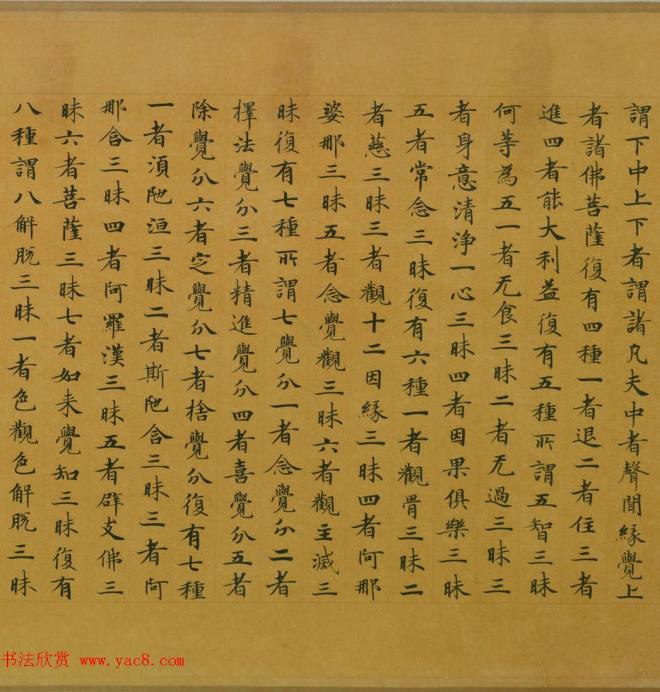 謂下中上下者謂諸凡夫中者聲聞緣覺上
者諸佛菩薩復有四種一者退二者住三者
進四者能大利益復有五種所謂五智三昧
何等為五一者无食三昧二者无過三昧三
者身意清淨一心三昧四者因果俱樂三昧
五者常念三昧復有六種一者觀骨三昧二
者慈三昧三者觀十二因緣三昧四者阿那
婆那三昧五者念覺觀三昧六者觀主滅三
昧復有七種所謂七覺分一者念覺分二者
擇法覺分三者精進覺分四者喜覺分五者
除覺分六者定覺分七者捨覺分復有七種
一者須陁洹三昧二者斯陁含三昧三者阿
那含三昧四者阿羅漢三昧五者辟支佛三
昧六者菩薩三昧七者如来覺知三昧復有
八種謂八解脫三昧一者色觀色解脫三昧
书法欣赏 www.yac8.com